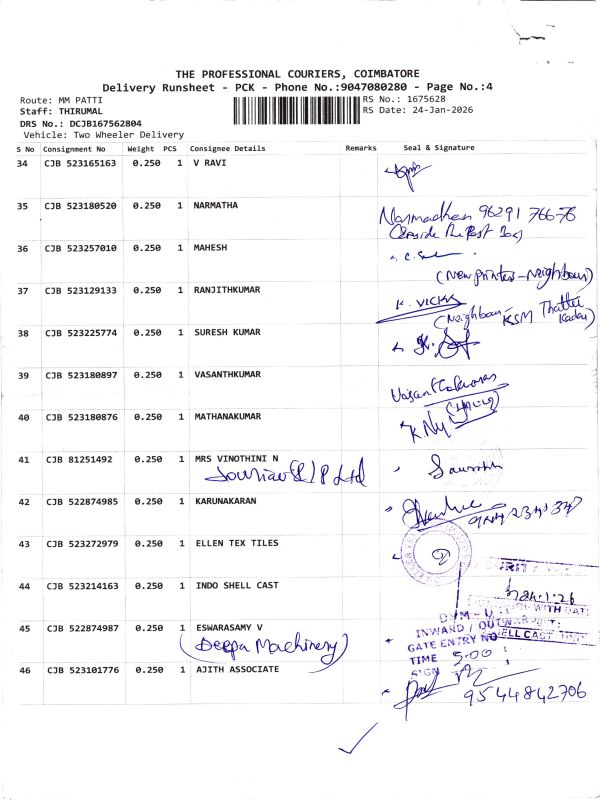 THE PROFESSIONAL COURIERS, COIMBATORE
Delivery Runsheet - PCK - Phone No.:9047080280 - Page No.:4
Route: MM PATTI
RS No.: 1675628
Staff: THIRUMAL
RS Date: 24-Jan-2026
DRS No.: DCJB167562804
Vehicle: Two Wheeler Delivery
S No Consignment No Weight PCS Consignee Details Remarks Seal & Signature
34 CJB 523165163 0.250 1 V RAVI
35 CJB 523180520 0.250 1 NARMATHA
96291 76676
36 CJB 523257010 0.250 1 MAHESH
(New printers - Neighbour)
37 CJB 523129133 0.250 1 RANJITHKUMAR
K. VICKY
(Neighbour - KSM Thattu Kadai)
38 CJB 523225774 0.250 1 SURESH KUMAR
39 CJB 523180897 0.250 1 VASANTHKUMAR
40 CJB 523180876 0.250 1 MATHANAKUMAR
41 CJB 81251492 0.250 1 MRS VINOTHINI N
P Ltd
42 CJB 522874985 0.250 1 KARUNAKARAN
43 CJB 523272979 0.250 1 ELLEN TEX TILES
44 CJB 523214163 0.250 1 INDO SHELL CAST
45 CJB 522874987 0.250 1 ESWARASAMY V
(Deepa Machinery)
INWARD / OUTWARD
GATE ENTRY NO
TIME 5:00
SIGN
46 CJB 523101776 0.250 1 AJITH ASSOCIATE
9544842706